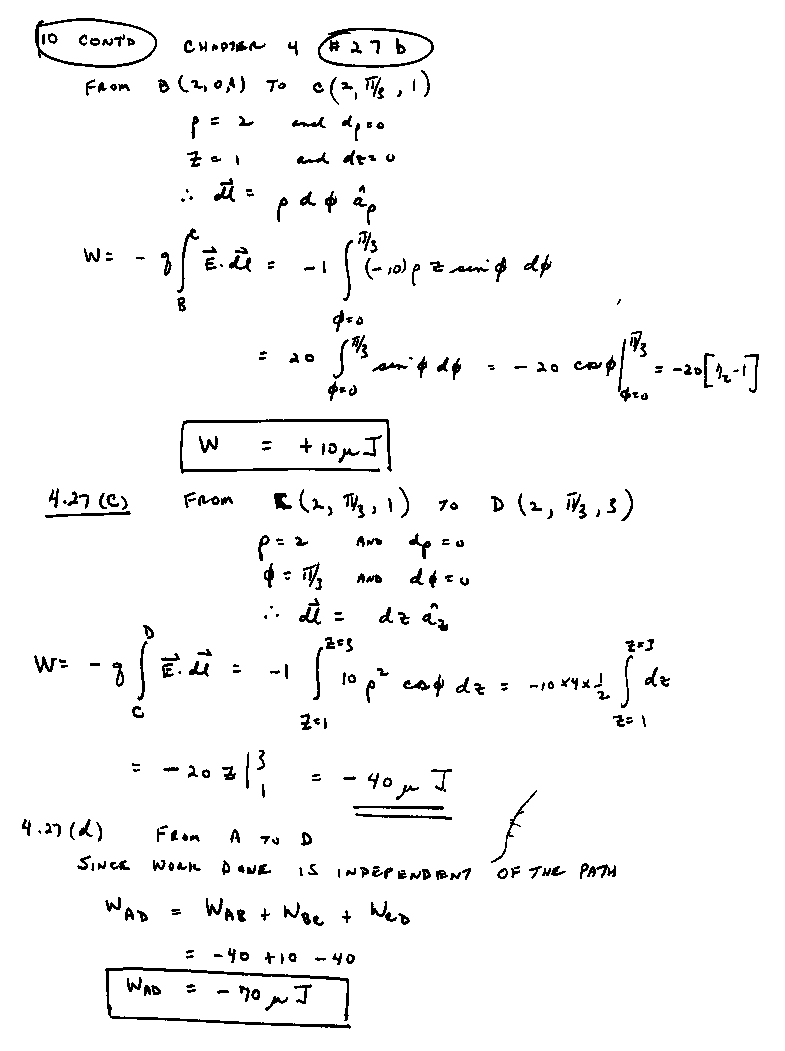 10 CONT'D CHAPTER 4 # 27 b
FROM B(2,0,1) TO C(2, π/3, 1)
ρ = 2 and dρ=0
z = 1 and dz=0
∴ dl⃗ = ρ dφ â_ρ
W = - q ∫_B^C E⃗·dl⃗ = -1 ∫_{φ=0}^{π/3} (-10) ρ z sin φ dφ
= 20 ∫_{φ=0}^{π/3} sin φ dφ = -20 cos φ |_{φ=0}^{π/3} = -20[1/2-1]
W = +10 μJ
4.27 (C) FROM C(2, π/3, 1) TO D(2, π/3, 3)
ρ = 2 AND dρ=0
φ = π/3 AND dφ=0
∴ dl⃗ = dz â_z
W = - q ∫_C^D E⃗·dl⃗ = -1 ∫_{z=1}^{z=3} 10 ρ² cos φ dz = -10×4×1/2 ∫_{z=1}^{z=3} dz
= -20 z |_1^3 = -40 μ J
4.27 (d) FROM A TO D
SINCE WORK DONE IS INDEPENDENT OF THE PATH
W_AD = W_AB + W_BC + W_CD
= -40 +10 -40
W_AD = -70 μ J